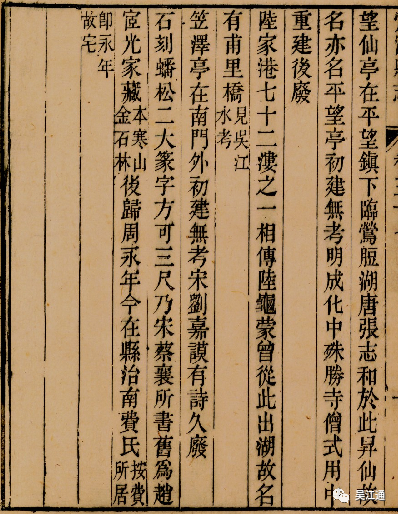 望仙亭在平望鎮下臨鶯脰湖唐張志和於此昇仙故
名亦名平望亭初建無考明成化中殊勝寺僧式用
重建後廢
陸家港七十二漊之一相傳陸龜蒙曾從此出湖故名
有甫里橋見吳江水考
笠澤亭在南門外初建無考宋劉嘉謨有詩久廢
石刻蟠松二大篆字方可三尺乃宋蔡襄所書舊爲趙
宧光家藏本寒山金石林後歸周永年今在縣治南費氏按費所居
卽永年故宅
吴江通